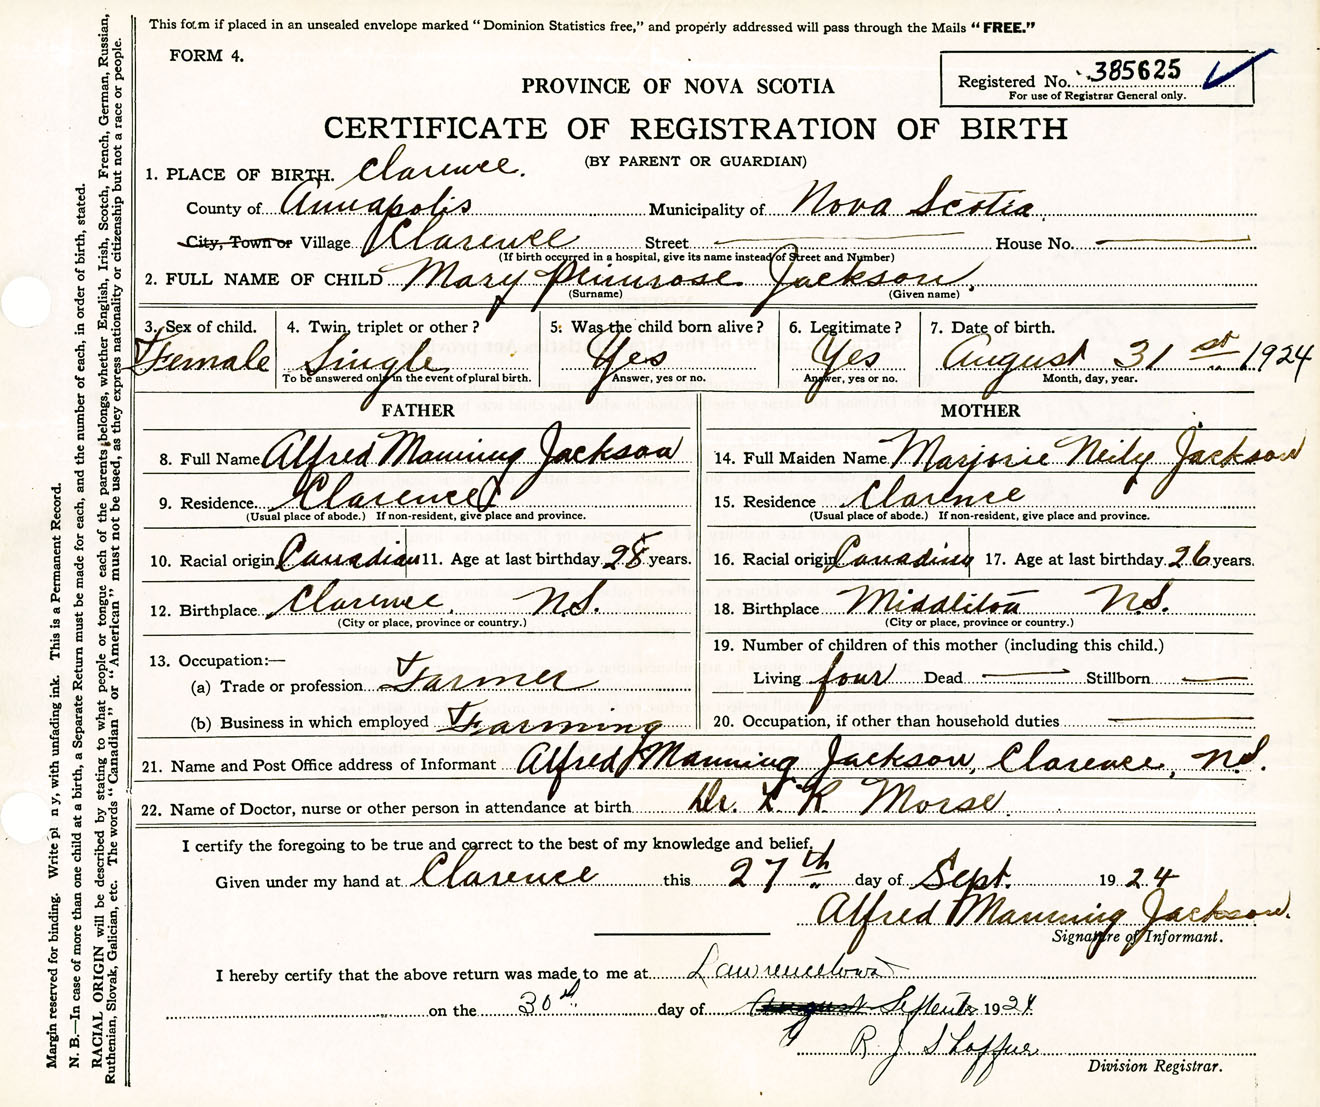 This form if placed in an unsealed envelope marked "Dominion Statistics free," and properly addressed will pass through the Mails "FREE."
FORM 4.
Registered No. 385625
For use of Registrar General only.
PROVINCE OF NOVA SCOTIA
CERTIFICATE OF REGISTRATION OF BIRTH
(BY PARENT OR GUARDIAN)
1. PLACE OF BIRTH. Clarence.
County of Annapolis Municipality of Nova Scotia.
City, Town or Village Clarence Street House No.
(If birth occurred in a hospital, give its name instead of Street and Number)
2. FULL NAME OF CHILD Mary Primrose Jackson.
(Surname) (Given name)
3. Sex of child. 4. Twin, triplet or other? 5. Was the child born alive? 6. Legitimate? 7. Date of birth.
Female Single Yes Yes August 31st 1924
To be answered only in the event of plural birth. Answer, yes or no. Answer, yes or no. Month, day, year.
FATHER MOTHER
8. Full Name Alfred Manning Jackson 14. Full Maiden Name Marjorie Neily Jackson
9. Residence Clarence 15. Residence Clarence
(Usual place of abode.) If non-resident, give place and province. (Usual place of abode.) If non-resident, give place and province.
10. Racial origin Canadian 11. Age at last birthday 28 years. 16. Racial origin Canadian 17. Age at last birthday 26 years.
12. Birthplace Clarence, N.S. 18. Birthplace Middleton N.S.
(City or place, province or country.) (City or place, province or country.)
19. Number of children of this mother (including this child.)
13. Occupation:—
(a) Trade or profession Farmer Living four Dead Stillborn
(b) Business in which employed Farming 20. Occupation, if other than household duties
21. Name and Post Office address of Informant Alfred Manning Jackson, Clarence, N.S.
22. Name of Doctor, nurse or other person in attendance at birth Dr. L R Morse
I certify the foregoing to be true and correct to the best of my knowledge and belief.
Given under my hand at Clarence this 27th day of Sept. 1924
Alfred Manning Jackson.
Signature of Informant.
I hereby certify that the above return was made to me at Lawrencetown
on the 30th day of August September 1924
R J Shaffner
Division Registrar.
Margin reserved for binding. Write pl n y, with unfading ink. This is a Permanent Record.
N. B.—In case of more than one child at a birth, a Separate Return must be made for each, and the number of each, in order of birth, stated.
RACIAL ORIGIN will be described by stating to what people or tongue each of the parents belongs, whether English, Irish, Scotch, French, German, Russian,
Ruthenian, Slovak, Galician, etc. The words "Canadian" or "American" must not be used, as they express nationality or citizenship but not a race or people.